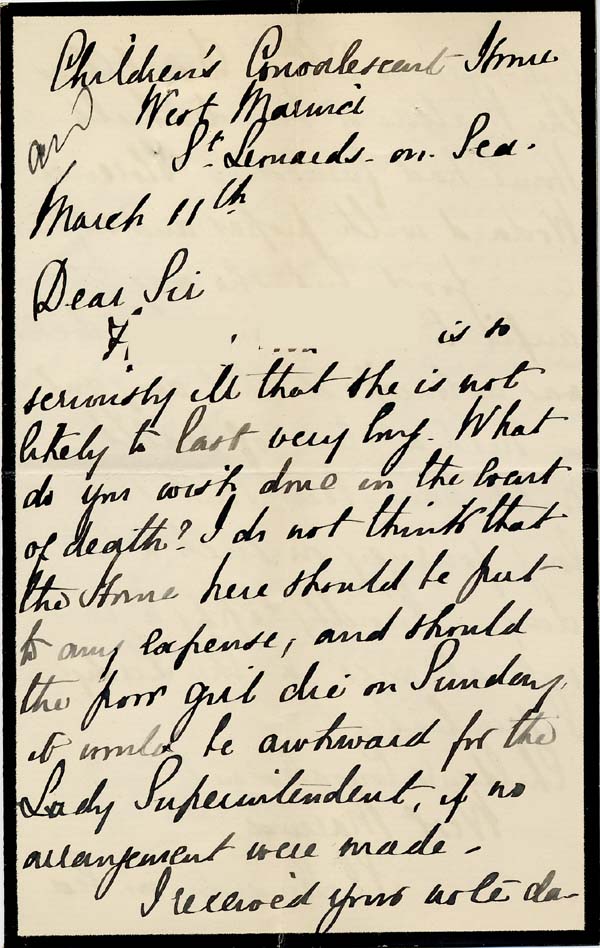 Children's Convalescent Home
West Marina
and
St Leonards-on-Sea.
March 11th
Dear Sir
is so
seriously ill that she is not
likely to last very long. What
do you wish done in the event
of death? I do not think that
the Home here should be put
to any expense, and should
the poor girl die on Sunday,
it would be awkward for the
Lady Superintendent, if no
arrangement were made -
I received your note da-